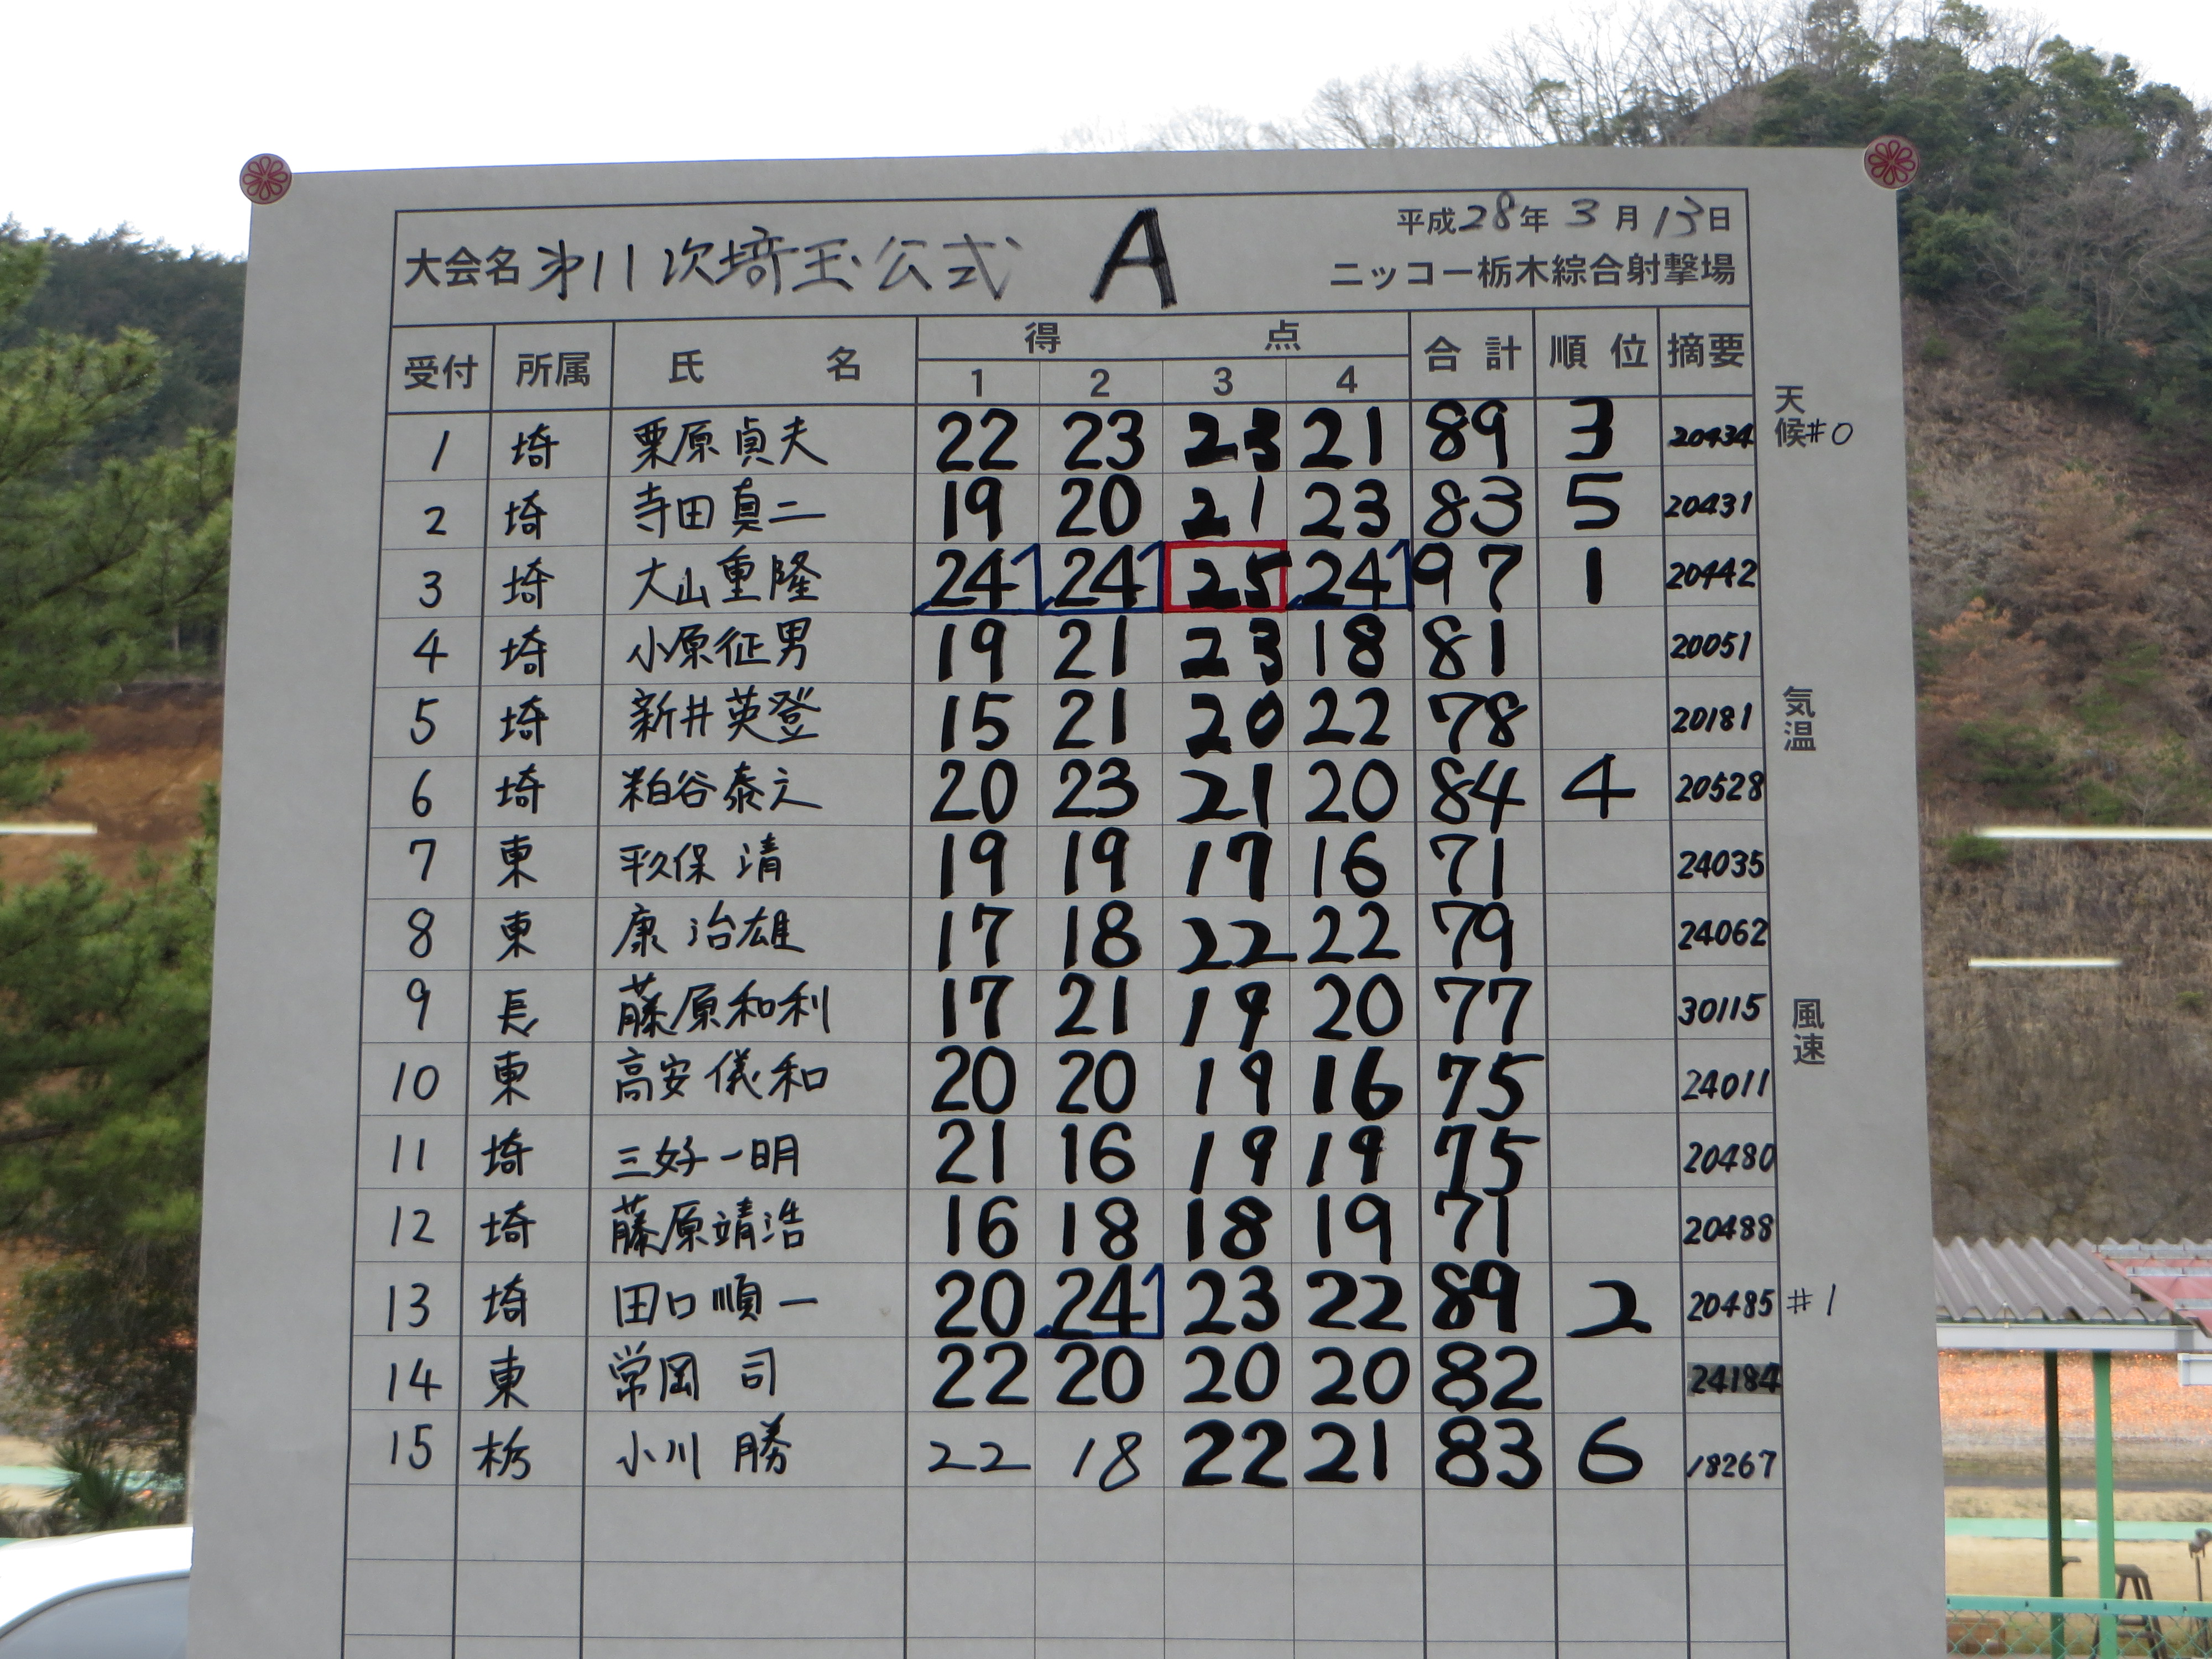 平成28年3月13日
大会名 第11次埼玉公式 A ニッコー栃木綜合射撃場
受付 所属 氏名 得点 合計 順位 摘要
1 2 3 4
天候#0
1 埼 栗原貞夫 22 23 23 21 89 3 20434
2 埼 寺田真二 19 20 21 23 83 5 20431
3 埼 大山重隆 24 24 25 24 97 1 20442
4 埼 小原征男 19 21 23 18 81 20051
5 埼 新井英登 15 21 20 22 78 20181
気温
6 埼 粕谷泰之 20 23 21 20 84 4 20528
7 東 平久保 清 19 19 17 16 71 24035
8 東 康 治雄 17 18 22 22 79 24062
9 長 藤原和利 17 21 19 20 77 30115
風速
10 東 高安儀和 20 20 19 16 75 24011
11 埼 三好一明 21 16 19 19 75 20480
12 埼 藤原靖浩 16 18 18 19 71 20488
13 埼 田口順一 20 24 23 22 89 2 20485 #1
14 東 常岡 司 22 20 20 20 82 24184
15 栃 小川 勝 22 18 22 21 83 6 18267